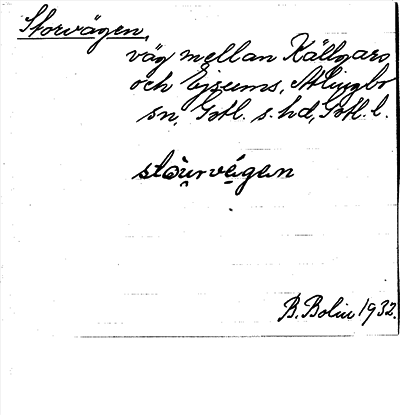 Storvägen,
väg mellan Källgårds
och Ejsums, Atlingbo
sn, Gotl. s. hd, Gotl. l.
stòu̯rvégen
B. Bolin 1932.